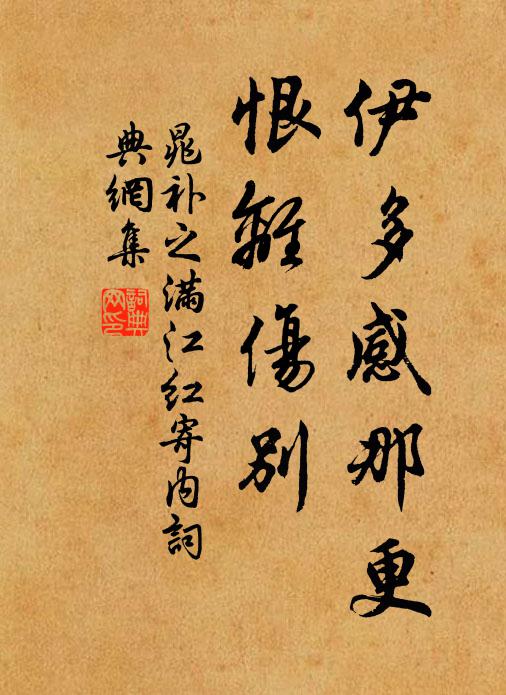 伊多感那更
恨離傷別
晁补之满江红寄内詞
典網集
詞典
网印